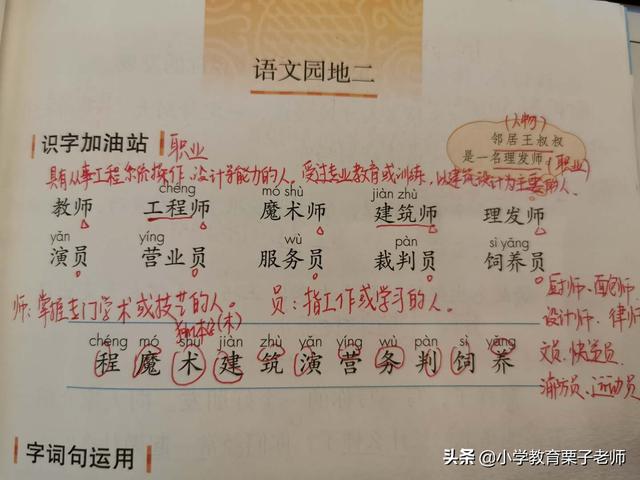 语文园地二
识字加油站 职业
(人物)
邻居王叔叔
是一名理发师。(职业)
具有从事工程系统操作、设计等能力的人。受过专业教育或训练,以建筑设计为主要的人。
chéng mó shù jiàn zhù
教师 工程师 魔术师 建筑师 理发师
yǎn yíng wù pàn sì yǎng
演员 营业员 服务员 裁判员 饲养员
师:掌握专门学术或技艺的人。 员:指工作或学习的人。
厨师、面包师
设计师、律师
文员、快递员
消防员、运动员
(木)
chéng mó shù jiàn zhù yǎn yíng wù pàn sì yǎng
程 魔 术 建 筑 演 营 务 判 饲 养
字词句运用
头条 @小学教育栗子老师